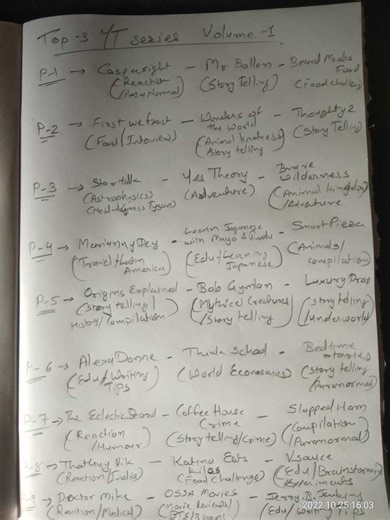 Top-3 YT series Volume-1
P-1 → Casperight - Mr. Ballen - Beard Meats Food
(Reaction /Paranormal) (Story Telling) (Food challenge)
P-2 → First we feast - Wonders of the World - Thoughty 2
(Food/Interview) (Animal kindness/ Story telling) (Story Telling)
P-3 → Startalk - Yes Theory - Brave Wilderness
(Astrophysics) (Adventure) (Animal kingdom) /Adventure
P-4 → - Learn Japanese with - Smart Pizza
(Travel/Latin America) (Edu/Learning Japanese) (Animals/ compilation)
P-5 → Origins Explained - Bob Gymlan - Luxury Drop
(Story telling/ History/compilation) (Mythical Creatures /Story telling) (story telling /underworld)
P-6 → Alexa Donne - Think School - Bedtime stories
(Edu/Writing Tips) (World Economics) (Story telling /Paranormal)
P-7 → The Eclectic - Coffee House Crime - Slapped Ham
(Reaction /Humour) (Story telling/crime) (Compilation/ /Paranormal)
8 → Vik - Katina Eats Kilos - Vsauce
(Reaction/India) (Food challenge) (Edu/Brainstorming Experiments
Doctor Mike - OSSA Movies - Jerry B. Jenkins
(Reaction/Medical) (Movie Reviews/ (Edu/Writing Tips
2022.10.25 16:03